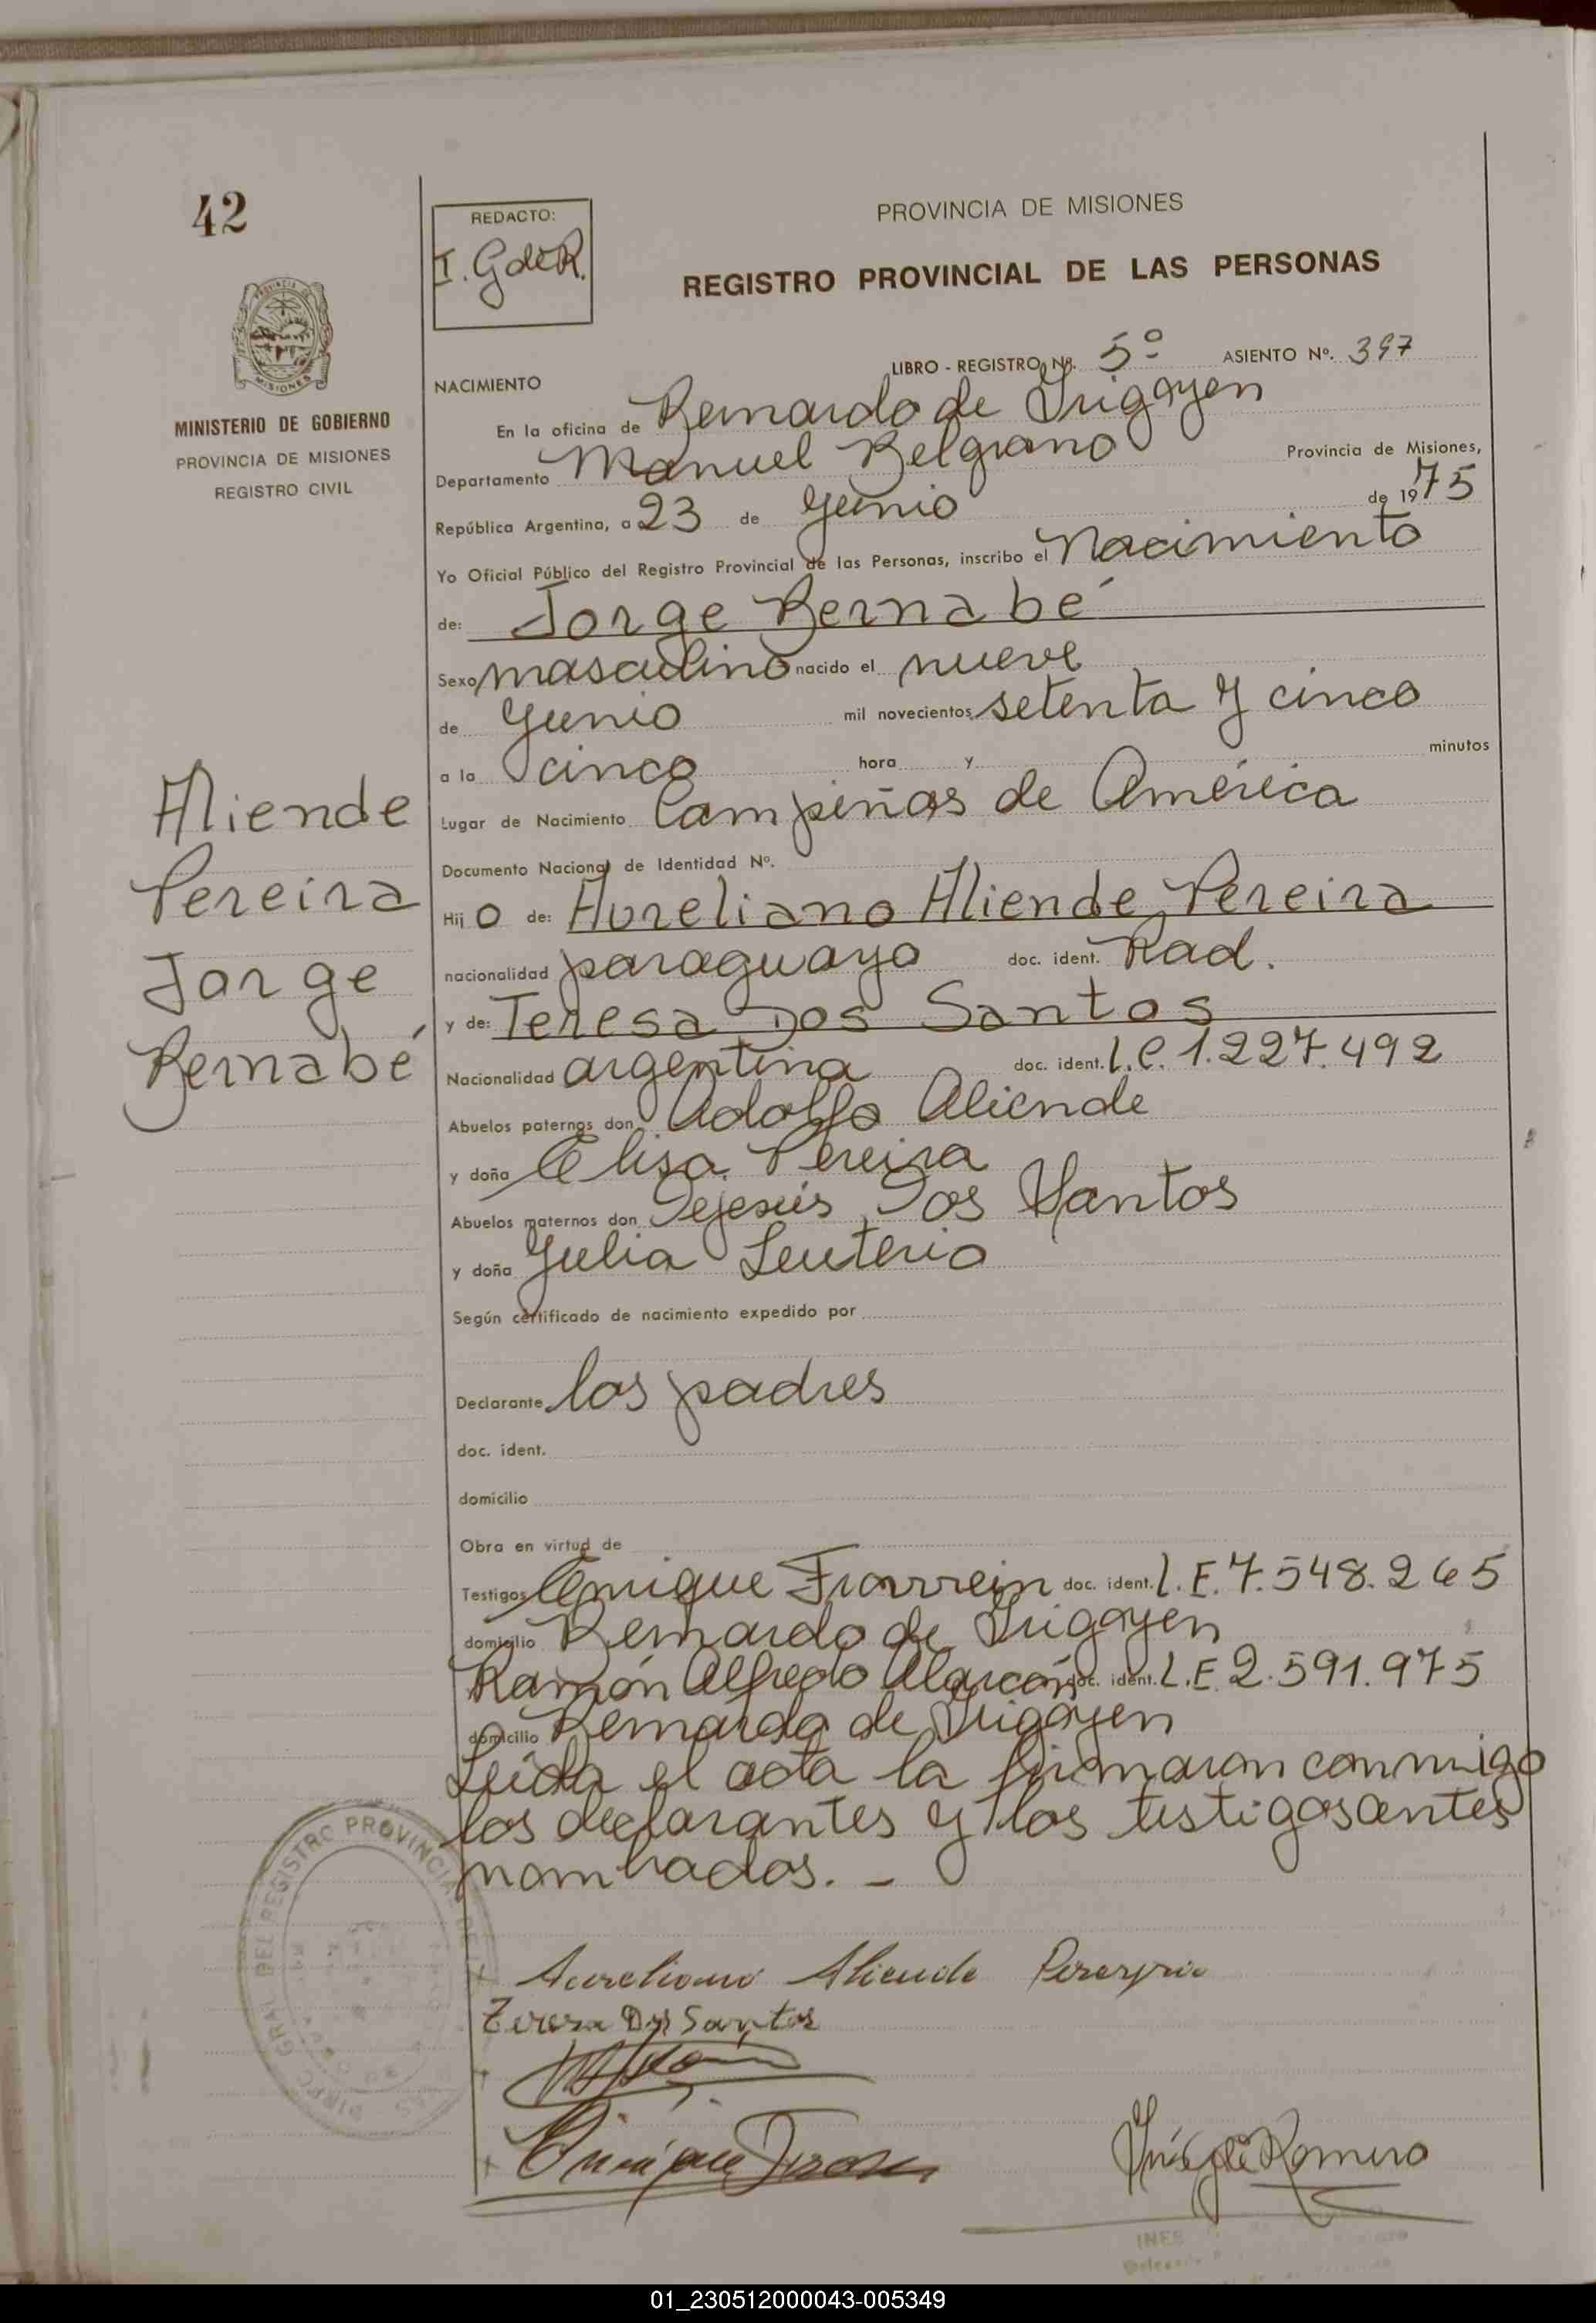 42
REDACTO:
I. G de R.
PROVINCIA DE MISIONES
REGISTRO PROVINCIAL DE LAS PERSONAS
MISIONES
MINISTERIO DE GOBIERNO
PROVINCIA DE MISIONES
REGISTRO CIVIL
LIBRO - REGISTRO Nº. 5º ASIENTO Nº. 397
NACIMIENTO
En la oficina de Bernardo de Irigoyen
Departamento Manuel Belgrano Provincia de Misiones,
República Argentina, a 23 de Junio de 1975
Yo Oficial Público del Registro Provincial de las Personas, inscribo el Nacimiento
de: Jorge Bernabé
Sexo masculino nacido el nueve
de Junio mil novecientos setenta y cinco
a la cinco hora y minutos
Lugar de Nacimiento Campiñas de América
Documento Nacional de Identidad Nº.
Hijo de: Aureliano Aliende Pereira
nacionalidad paraguayo doc. ident. Rad.
y de: Teresa Dos Santos
Nacionalidad argentina doc. ident. L.C. 1.227.492
Abuelos paternos don Adolfo Aliende
y doña Elisa Pereira
Abuelos maternos don Dejesús Dos Santos
y doña Julia Leuterio
Según certificado de nacimiento expedido por
Declarante los padres
doc. ident.
domicilio
Obra en virtud de
Testigos Enrique doc. ident. L.E. 7.548.265
domicilio Bernardo de Irigoyen
Ramón Alfredo Alarcón doc. ident. L.E. 2.591.975
domicilio Bernardo de Irigoyen
Leída el acta la firmaron conmigo
los declarantes y los testigos antes
nombrados. -
Aliende
Pereira
Jorge
Bernabé
DIREC. GRAL DEL REGISTRO PROVINCIAL DE LAS
Aureliano Aliende
Teresa Dos Santos
Enrique
Inés G de Romero
INES
01_230512000043-005349